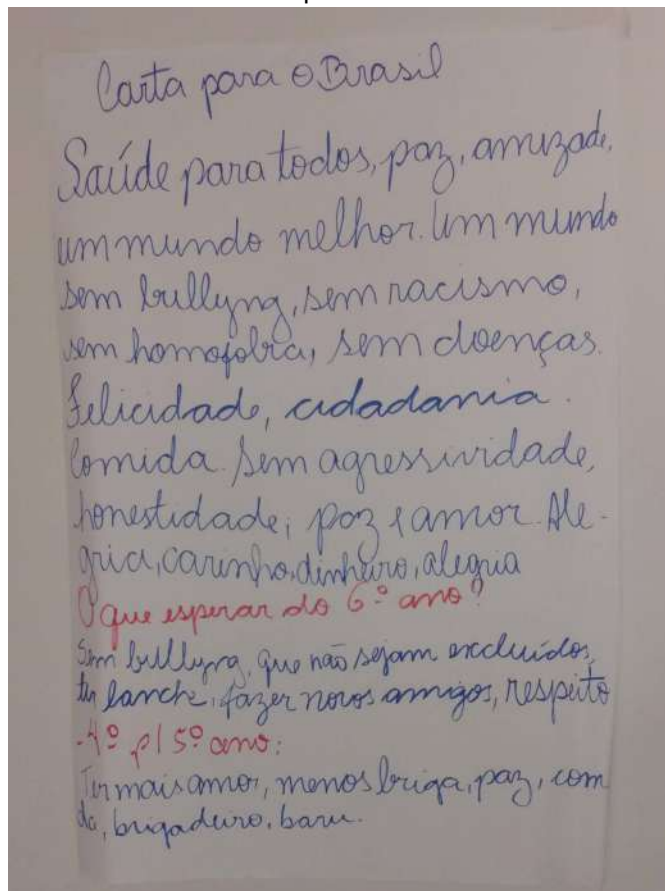 Carta para o Brasil
Saúde para todos, paz, amizade,
um mundo melhor. Um mundo
sem bullyng, sem racismo,
sem homofobia, sem doenças.
Felicidade, cidadania.
Comida. Sem agressividade,
honestidade, paz e amor. Ale-
gria, carinho, dinheiro, alegria
O que esperar do 6º ano?
Sem bullyng, que não sejam excluídos,
ter lanche, fazer novos amigos, respeito
-4º p/ 5º ano:
Ter mais amor, menos briga, paz, comi
da, brigadeiro, baru.